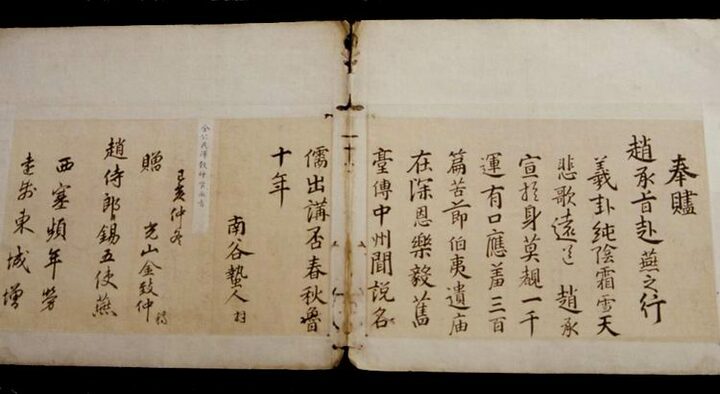 奉贐
趙承旨赴燕之行
羲卦純陰霜雪天
悲歌遠送 趙承
宣挺身莫覩一千
運有口應羞三百
篇苦節伯夷遺庙
在深恩樂毅舊
臺傳中州聞說名
儒出講否春秋魯
十年
南谷蟄人
己亥仲冬
贈 光山金致仲
趙侍郎錫五使燕
西塞頻年勞
東城增